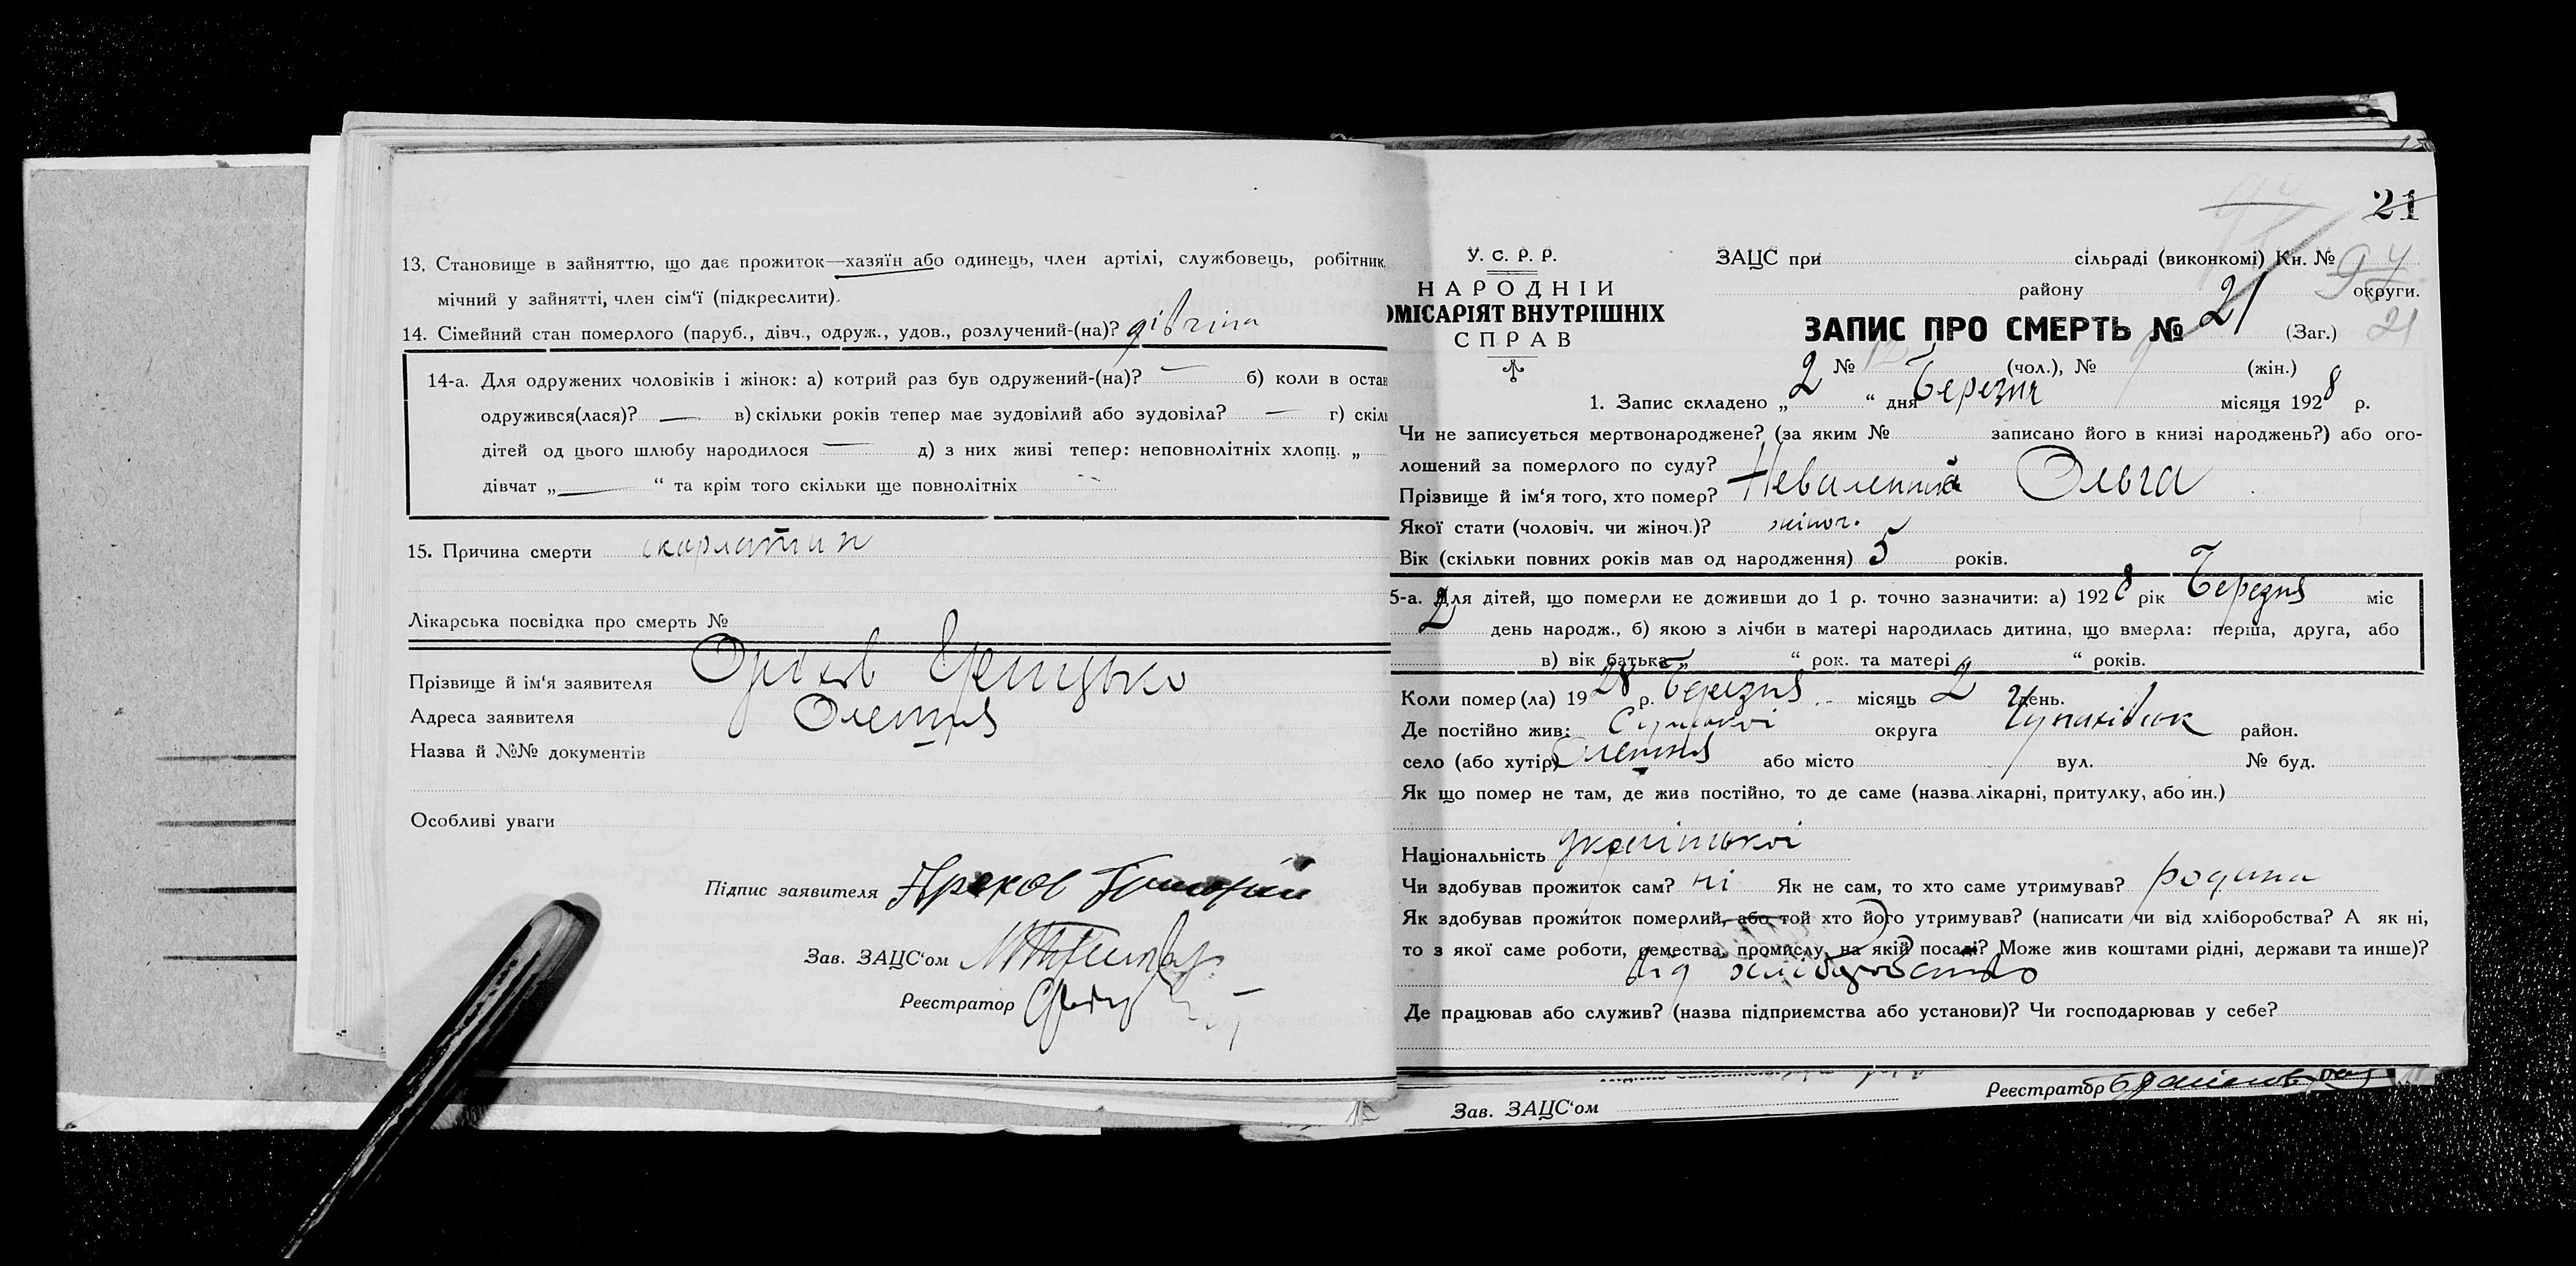 13. Становище в зайняттю, що дає прожиток—хазяїн або одинець, член артілі, службовець, робітник,
мічний у зайнятті, член сім‘ї (підкреслити).
14. Сімейний стан померлого (паруб., дівч., одруж., удов., розлучений-(на)? дівчина
14-а. Для одружених чоловіків і жінок: а) котрий раз був одружений-(на)? — б) коли в остан
одружився(лася)? — в) скільки років тепер має зудовілий або зудовіла? — г) скіль
дітей од цього шлюбу народилося — д) з них живі тепер: неповнолітніх хлопц. „
дівчат „—“ та крім того скільки ще повнолітніх
15. Причина смерти скарлатин
Лікарська посвідка про смерть №
Прізвище й ім‘я заявителя
Адреса заявителя Олешня
Назва й №№ документів
Особливі уваги
Підпис заявителя
Зав. ЗАЦС‘ом
Реєстратор
21
У. С. Р. Р.
НАРОДНІЙ
ОМІСАРІЯТ ВНУТРІШНІХ
СПРАВ
ЗАЦС при сільраді (виконкомі) Кн. № 94
району округи.
ЗАПИС ПРО СМЕРТЬ № 21 (Заг.) 21
№ 12 (чол.), № 9 (жін.)
1. Запис складено „2“ дня Березня місяця 1928 р.
Чи не записується мертвонароджене? (за яким № записано його в книзі народжень?) або ого-
лошений за померлого по суду?
Прізвище й ім‘я того, хто помер? Ольга
Якої стати (чоловіч. чи жіноч.)? жіноч.
Вік (скільки повних років мав од народження) 5 років.
5-а. Для дітей, що померли не доживши до 1 р. точно зазначити: а) 1928 рік Березня міс
2 день народж., б) якою з лічби в матері народилась дитина, що вмерла: перша, друга, або
в) вік батька „ “ рок. та матері „ “ років.
Коли помер(ла) 1928 р. Березня місяць 2 день.
Де постійно жив: Сумської округа Чупахівськ район.
село (або хутір) Олешня або місто вул. № буд.
Як що помер не там, де жив постійно, то де саме (назва лікарні, притулку, або ин.)
Національність української
Чи здобував прожиток сам? ні Як не сам, то хто саме утримував? родина
Як здобував прожиток померлий, або той хто його утримував? (написати чи від хліборобства? А як ні,
то з якої саме роботи, ремества, промислу, на якій посаді? Може жив коштами рідні, держави та инше)?
від хліборобство
Де працював або служив? (назва підприємства або установи)? Чи господарював у себе?
Зав. ЗАЦС‘ом
Реєстратор